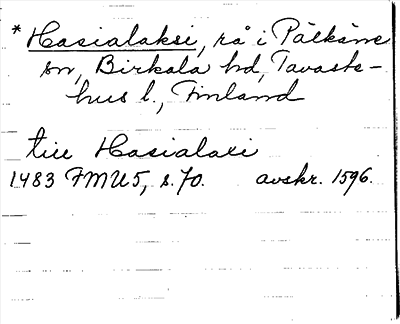 * Hasialaksi, rå i Pälkäne
sn, Birkala hd, Tavaste-
hus l., Finland
till Hasialaxi
1483 FMU 5, s. 70. avskr. 1596.